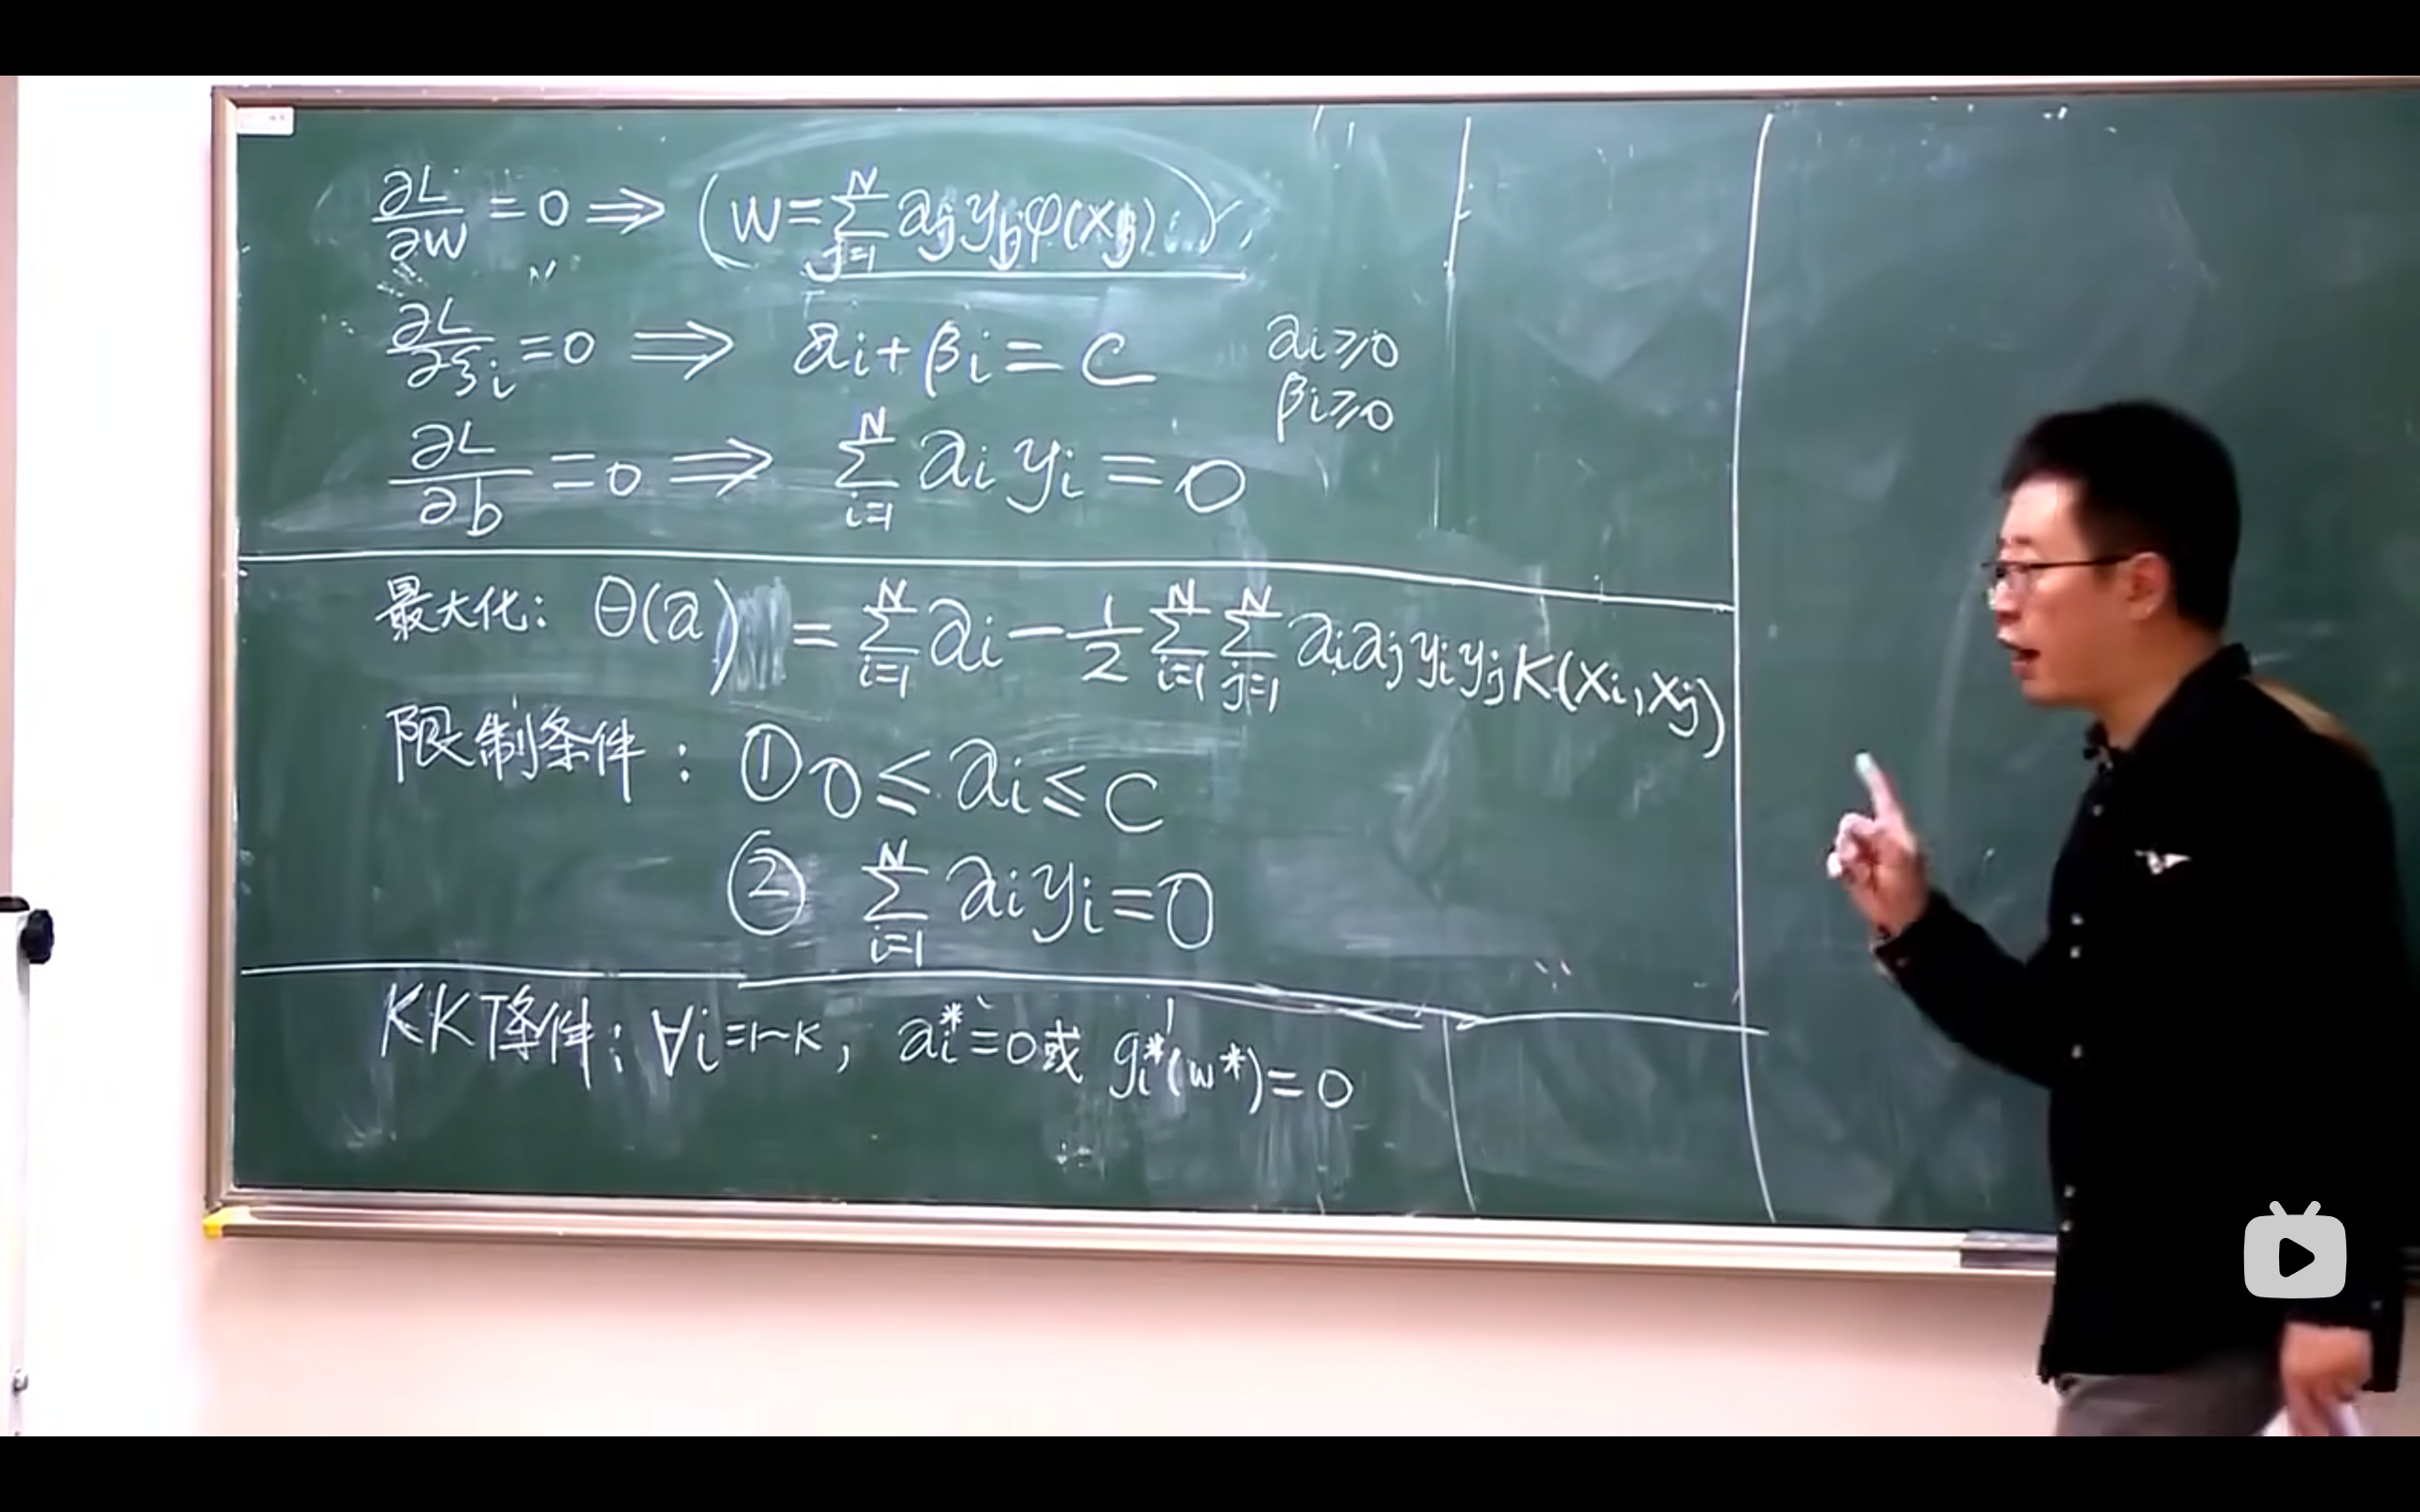 ∂L/∂w = 0 ⇒ (w = ∑_{j=1}^{N} a_j y_j φ(x_j))
∂L/∂ξ_i = 0 ⇒ a_i + β_i = C   a_i ≥ 0
β_i ≥ 0
∂L/∂b = 0 ⇒ ∑_{i=1}^{N} a_i y_i = 0
最大化: θ(a) = ∑_{i=1}^{N} a_i − 1/2 ∑_{i=1}^{N} ∑_{j=1}^{N} a_i a_j y_i y_j K(x_i, x_j)
限制条件: ① 0 ≤ a_i ≤ C
② ∑_{i=1}^{N} a_i y_i = 0
KKT条件: ∀i = 1~K, a_i^* = 0 或 g_i^*(w^*) = 0